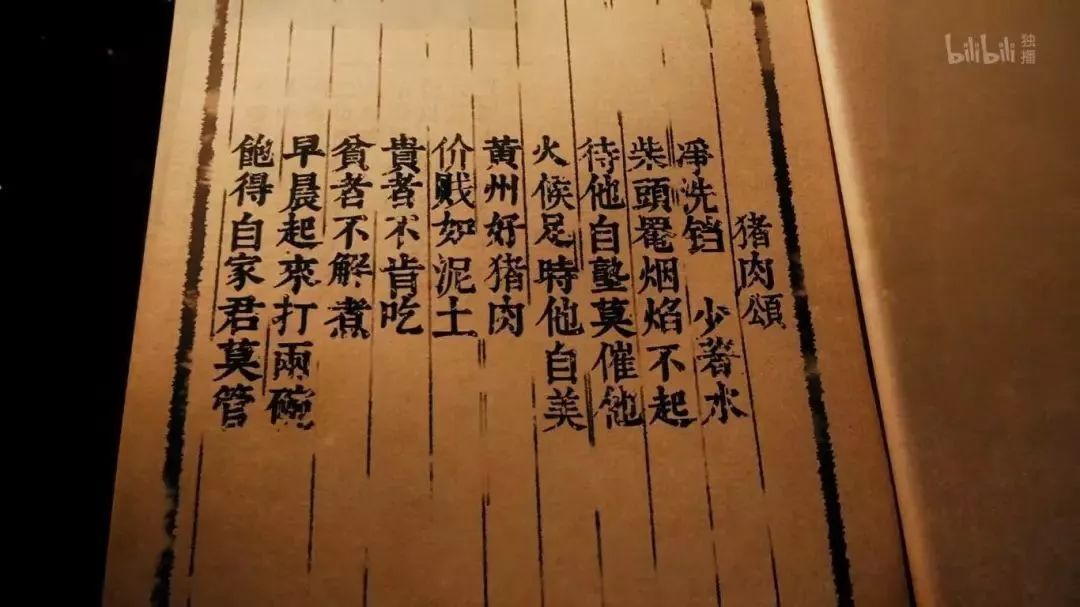 猪肉頌
凈洗铛 少著水
柴頭罨烟焰不起
待他自塾莫催他
火候足時他自美
黄州好猪肉
价贱如泥土
貴者不肯吃
貧者不解煮
早晨起來打兩碗
飽得自家君莫管
bilibili 独播